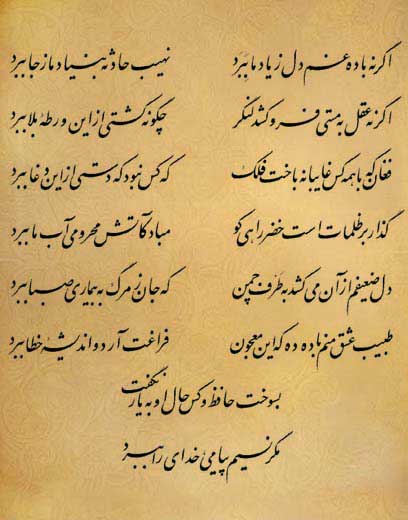 اگر نه باده غم دل ز یاد ما ببرد نهیب حادثه بنیاد ما ز جا ببرد
اگر نه عقل به مستی فروکشد لنگر چگونه کشتی از این ورطهٔ بلا ببرد
فغان که با همه کس غایبانه باخت فلک که کس نبود که دستی از این دغا ببرد
گذار بر ظلمات است خضر راهی کو مباد کآتش محرومی آب ما ببرد
دل ضعیفم از آن می کشد به طَرْف چمن که جان ز مرگ به بیماری صبا ببرد
طبیب عشق منم باده ده که این معجون فراغت آرد و اندیشهٔ خطا ببرد
بسوخت حافظ و کس حال او به یار نگفت
مگر نسیم پیامی خدای را ببرد